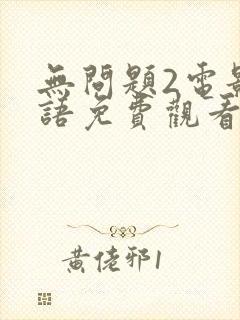 無問題2電影
語免費觀看
黃佬邪1